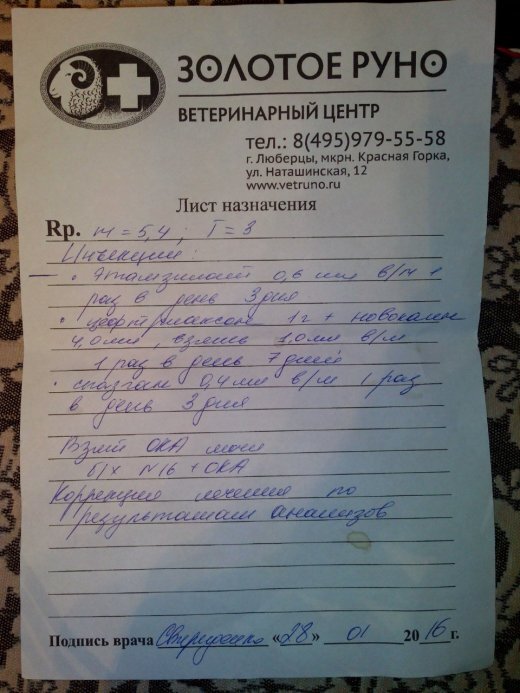 ЗОЛОТОЕ РУНО
ВЕТЕРИНАРНЫЙ ЦЕНТР
тел.: 8(495)979-55-58
г. Люберцы, мкрн. Красная Горка,
ул. Наташинская, 12
www.vetruno.ru
Лист назначения
Rp. m = 5,4 ; T = 3
Инъекции:
— • Этамзилат 0,6 мл в/м 1
раз в день 3 дня
• цефтриаксон 1г + новокаин
4,0 мл, взять 1,0 мл в/м
1 раз в день 7 дней
• спазган 0,4 мл в/м 1 раз
в день 3 дня
Взяли ОКА мочи
б/х N16 + ОКА
Коррекция лечения по
результатам анализов
Подпись врача «28» 01 2016 г.